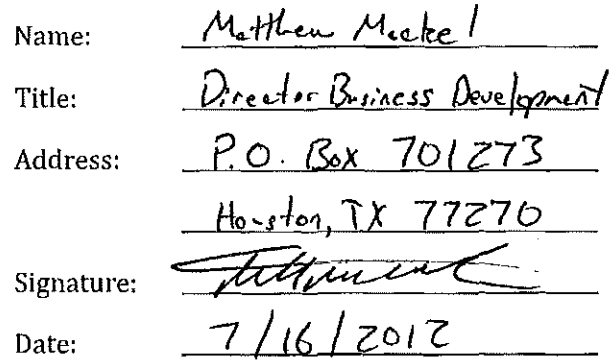 Name: Matthew Meckel
Title: Director Business Development
Address: P.O. Box 701273
Houston, TX 77270
Signature:
Date: 7/16/2012